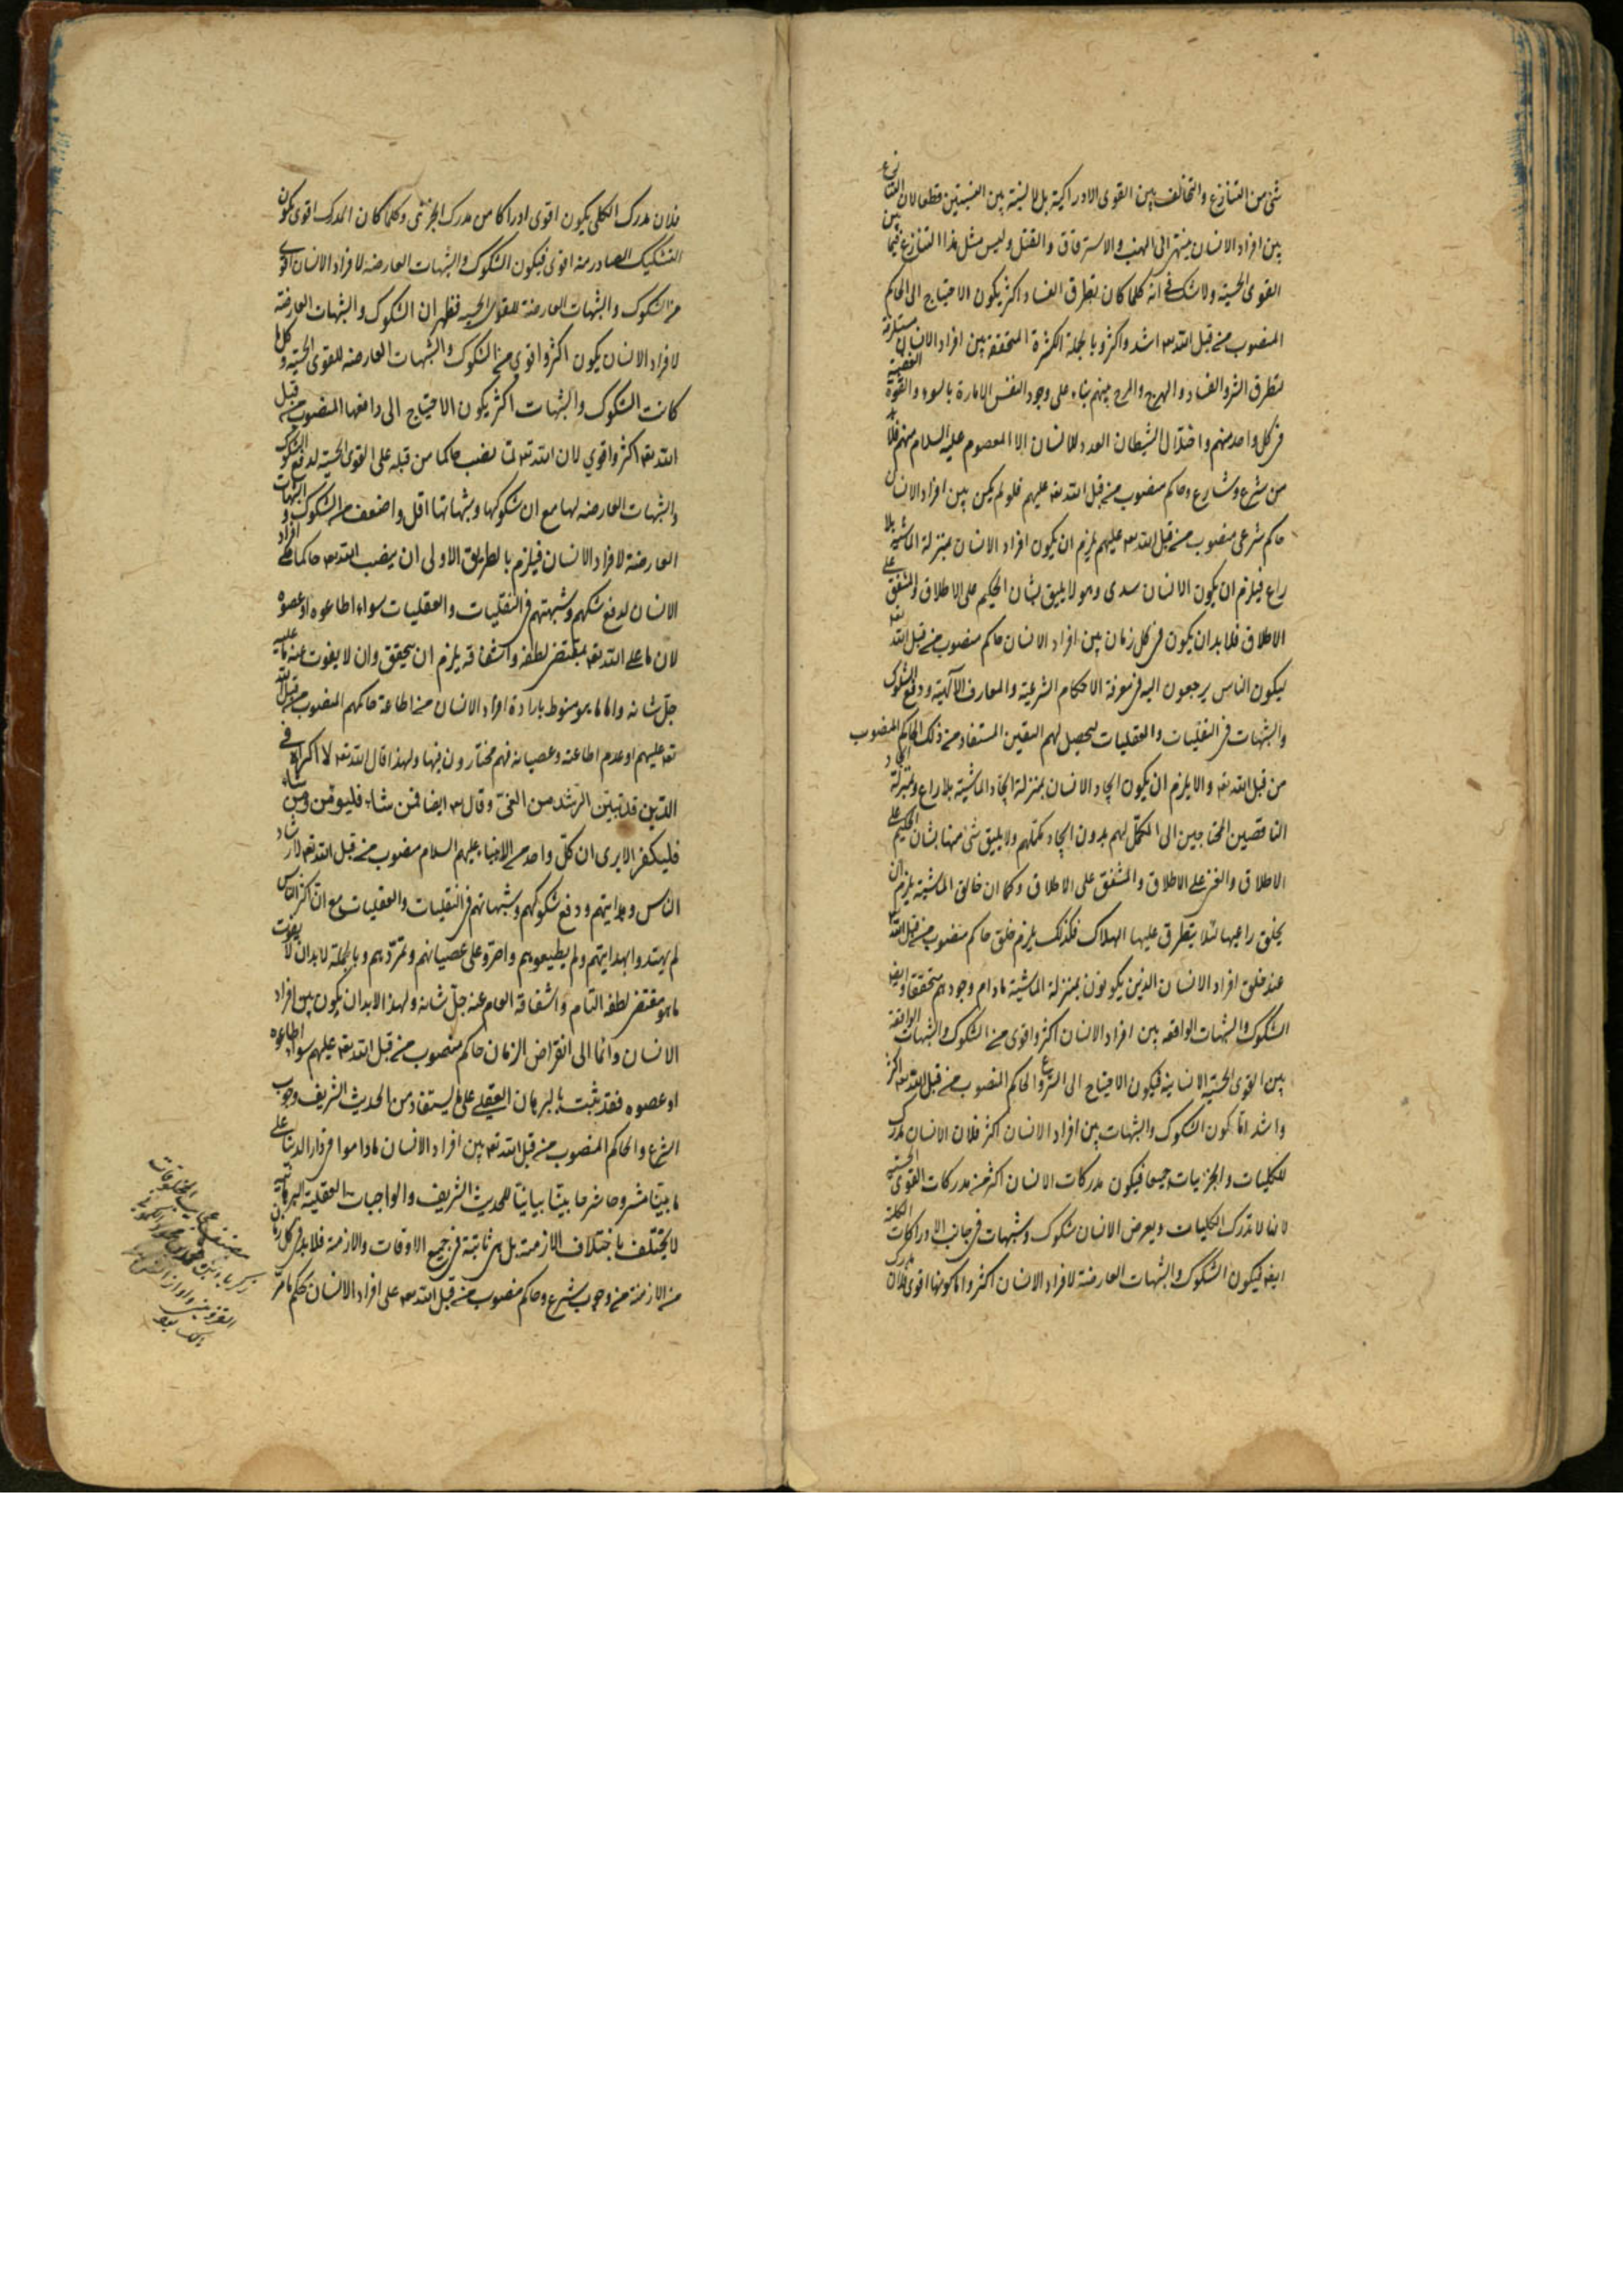 شئ من التنازع والتخالف بين القوى الادراكية بل لا نسبة بين النسبتين قطعا لان التنازع
بين افراد الانسان ينتهى الى النهب والاسترقاق والقتل وليس مثل هذا التنازع فيما بين
القوى الحسية ولا شك فى انه كلما كان تطرق الفساد اكثر يكون الاحتياج الى الحاكم
المنصوب من قبل الله تعه اشد واكثر وبالجملة الكثرة المتحققة بين افراد الانسان مستلزمة
لتطرق الشر والفساد والهرج والمرج بينهم بناء على وجود النفس الامارة بالسوء والقوة الغضبية
فى كل واحد منهم واضلال الشيطان العدو للانسان الا المعصوم عليه السلام منهم فلا بد
من شرع وشارع وحاكم منصوب من قبل الله تعه عليهم فلو لم يكن بين افراد الانسان
حاكم شرعى منصوب من قبل الله تعه عليهم يلزم ان يكون افراد الانسان بمنزلة الماشية بلا
راع فيلزم ان يكون الانسان سدى وهو لا يليق بشان الحكيم على الاطلاق والمشفق على
الاطلاق فلا بد ان يكون فى كل زمان بين افراد الانسان حاكم منصوب من قبل الله تعه
ليكون الناس يرجعون اليه فى معرفة الاحكام الشرعية والمعارف الآلهية ودفع الشكوك
والشبهات فى النقليات والعقليات ليحصل لهم اليقين المستفاد من ذلك الحاكم المنصوب
من قبل الله تعه والا يلزم ان يكون ايجاد الانسان بمنزلة ايجاد الماشية بلا راع وبمنزلة ايجاد
الناقصين المحتاجين الى المكمل لهم بدون ايجاد مكملهم ولا يليق شئ منها بشان الحكيم على
الاطلاق والغنى على الاطلاق والمشفق على الاطلاق وكما ان خالق الماشية يلزم ان
يخلق راعيها لئلا يتطرق عليها الهلاك فكذلك يلزم خلق حاكم منصوب من قبل الله تعه
عند خلق افراد الانسان الذين يكونون بمنزلة الماشية مادام وجودهم متحققا وايضا
الشكوك والشبهات الواقعه بين افراد الانسان اكثر واقوى من الشكوك والشبهات الواقعة
بين القوى الحسية الانسانية فيكون الاحتياج الى الشرع والحاكم المنصوب من قبل الله تعه اكثر
واشد اما كون الشكوك والشبهات بين افراد الانسان اكثر فلان الانسان مدرك
للكليات والجزئيات جميعا فيكون مدركات الانسان اكثر من مدركات القوى الحسية
لانها لا تدرك الكليات ويعرض الانسان شكوك وشبهات فى جانب الادراكات الكلية
ايضا فيكون الشكوك والشبهات العارضة لافراد الانسان اكثر واما كونها اقوى فلان مدرك
فلان مدرك الكلى يكون اقوى ادراكا من مدرك الجزئى وكلما كان المدرك اقوى يكون
التشكيك الصادر منه اقوى فيكون الشكوك والشبهات العارضة لافراد الانسان اقوى
من الشكوك والشبهات العارضة للقوى الحسية فظهر ان الشكوك والشبهات العارضة
لافراد الانسان يكون اكثر واقوى من الشكوك والشبهات العارضه للقوى الحسية وكلما
كانت الشكوك والشبهات اكثر يكون الاحتياج الى دافعها المنصوب من قبل
الله تعه اكثر واقوى لان الله تعه لما نصب حاكما من قبله على القوى الحسية لدفع الشكوك
والشبهات العارضه لها مع ان شكوكها وشبهاتها اقل واضعف من الشكوك والشبهات
العارضة لافراد الانسان فيلزم بالطريق الاولى ان ينصب الله تعه حاكما على افراد
الانسان لدفع شكهم وشبهتهم فى النقليات والعقليات سواء اطاعوه او عصوه
لان ما على الله تعه بمقتضى لطفه واشفاقه يلزم ان يتحقق وان لا يفوت عنه ما عليه
جل شانه واما ما هو منوط بارادة افراد الانسان من اطاعة حاكمهم المنصوب من قبل الله
تعه عليهم او عدم اطاعته وعصيانه فهم مختارون فيها ولهذا قال الله تعه لا اكراه فى
الدين قد تبين الرشد من الغى وقال تعه ايضا فمن شاء فليومن ومن شاء
فليكفر الا يرى ان كل واحد من الانبياء عليهم السلام منصوب من قبل الله تعه لارشاد
الناس وهدايتهم ودفع شكوكهم وشبهاتهم فى النقليات والعقليات مع ان اكثر الناس
لم يهتدوا بهدايتهم ولم يطيعوهم واصروا على عصيانهم وتمردهم وبالجملة لا بد ان لا يفوت
ما هو مقتضى لطفه التام واشفاقه العام عنه جل شانه ولهذا لا بد ان يكون بين افراد
الانسان دائما الى انقراض الزمان حاكم منصوب من قبل الله تعه عليهم سواء اطاعوه
او عصوه فقد ثبت بالبرهان العقلى على ما يستفاد من الحديث الشريف وجوب
الشرع والحاكم المنصوب من قبل الله تعه بين افراد الانسان ماداموا فى دار الدنيا على
ما بينا مشروحا شرحا بيانيا للحديث الشريف والواجبات العقلية البرهانية
لا يختلف باختلاف الازمنة بل هى ثابتة فى جميع الاوقات والازمنة فلا بد فى كل زمان
من الازمنة من وجوب شرع وحاكم منصوب من قبل الله تعه على افراد الانسان بحكم ما مر
مصنف عجايب المخلوقات
زكريا بن محمد بن محمود
القزوينى